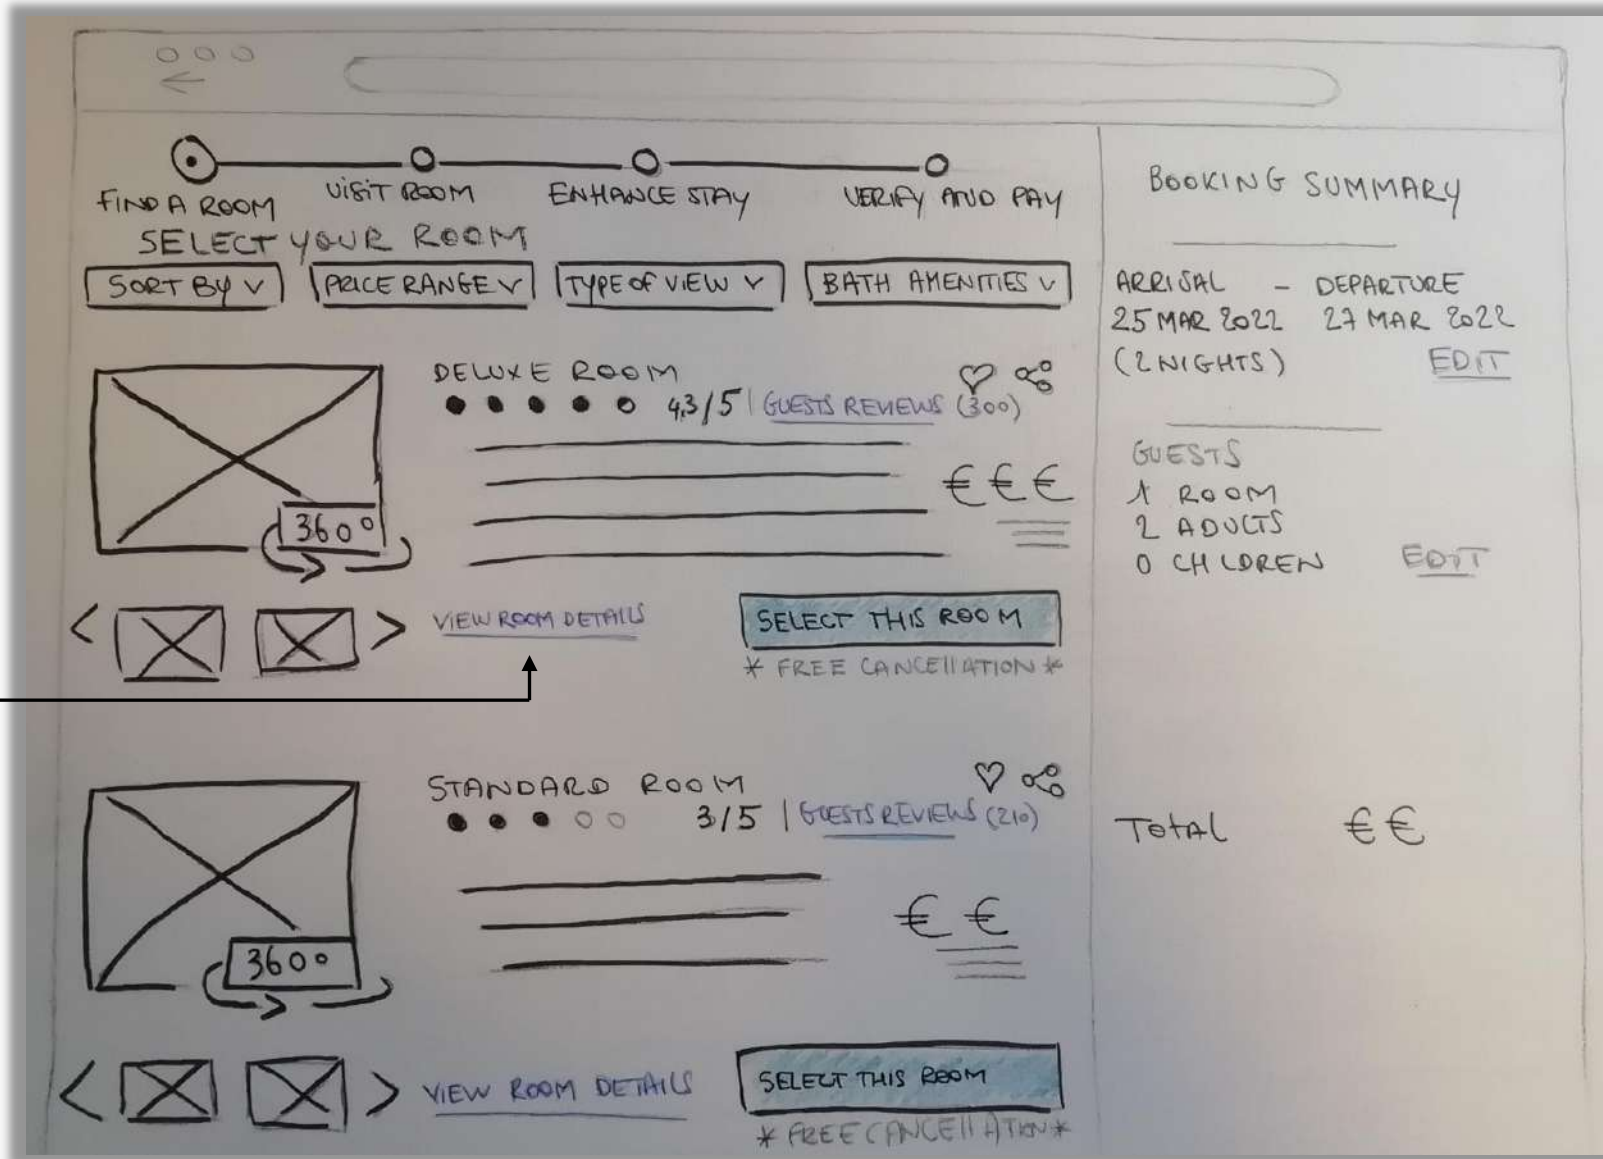 FIND A ROOM
VISIT ROOM
ENHANCE STAY
VERIFY AND PAY
SELECT YOUR ROOM
SORT BY
PRICE RANGE
TYPE OF VIEW
BATH AMENITIES
DELUXE ROOM
4,3/5 | GUESTS REVIEWS (300)
€€€
360°
VIEW ROOM DETAILS
SELECT THIS ROOM
* FREE CANCELLATION *
STANDARD ROOM
3/5 | GUESTS REVIEWS (210)
€€
360°
VIEW ROOM DETAILS
SELECT THIS ROOM
* FREE CANCELLATION *
BOOKING SUMMARY
ARRISAL - DEPARTURE
25 MAR 2022 27 MAR 2022
(2 NIGHTS) EDIT
GUESTS
1 ROOM
2 ADULTS
0 CHLDREN EDIT
TOTAL €€